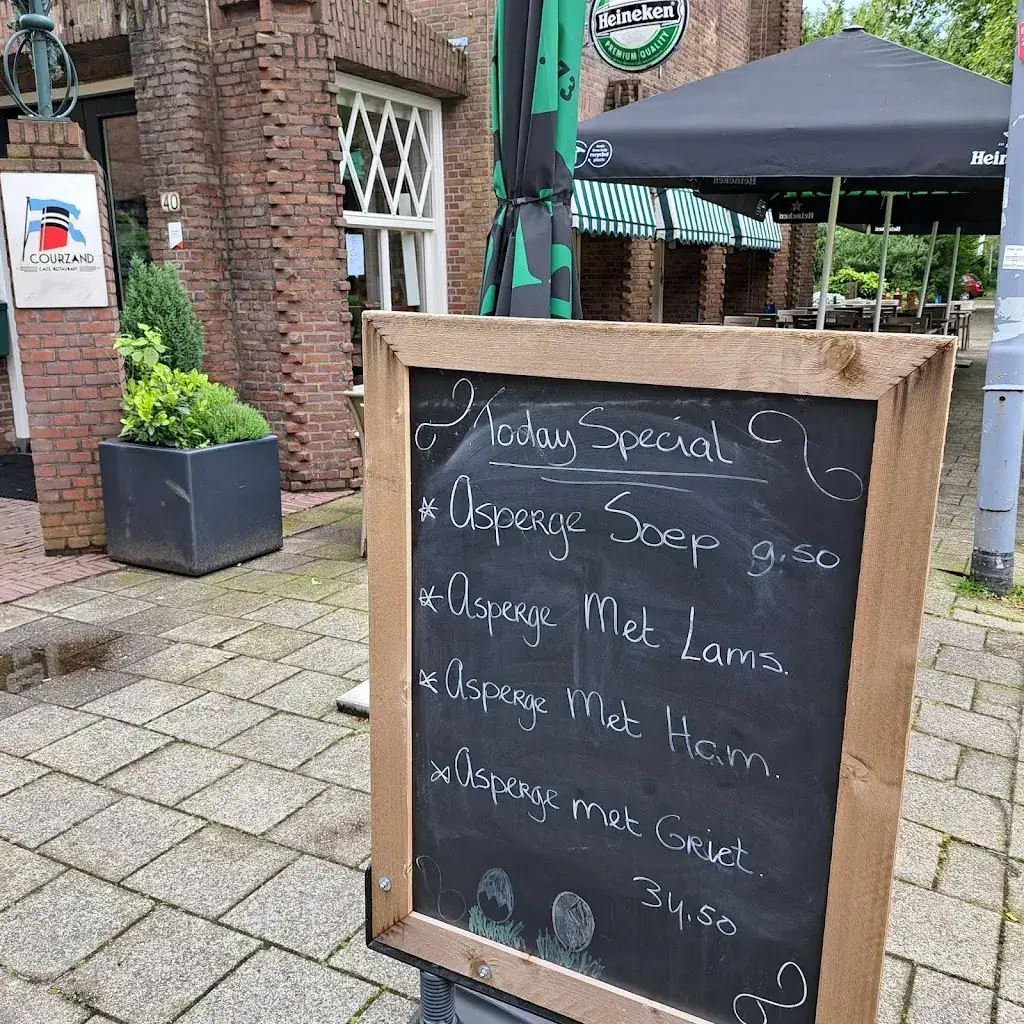 Heineken
PREMIUM QUALITY
Hein
Heineken
Heineken
40
COURZAND
CAFE RESTAURANT
Today Special
* Asperge Soep 9.50
* Asperge Met Lams.
* Asperge Met Ham.
* Asperge met Griet.
34,50